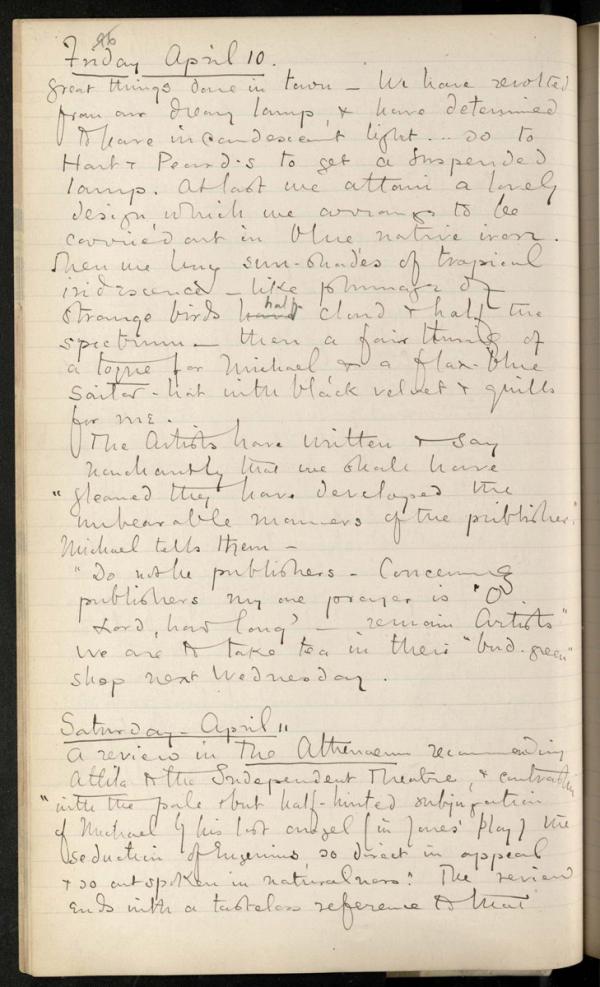 96
Friday April 10.
great things done in town – We have revolted
from our dreary lamp, & have determined
to have incandescent light ... so to
Hart & Peard's to get a suspended
lamp. At last we attain a lovely
design which we arrange to be
carried out in blue native iron.
Then we buy sun-shades of tropical
iridescence – like plumage of
strange birds half cloud & half the
spectrum – then a fair thing of
a toque for Michael & a flax-blue
Sailor-hat with black velvet & quills
for me.
The Artists have written & say
that we shall have
"gleaned they have developed the
unbearable manners of the publisher".
Michael tells them –
"Do not be publishers – Concerning
publishers my one prayer is 'O
Lord, how long' – remain Artists"
We are to take tea in their "bud-green"
shop next Wednesday.
Saturday – April 11
A review in The Athenaeum recommending
Attila to the Independent Theatre, &
"with the pale & but half-hinted subjugation
of Michael by his lost angel [in Jones' play] the
seduction of Eugenius so direct in appeal
& so outspoken in naturalness". The review
ends with a tasteless reference to that